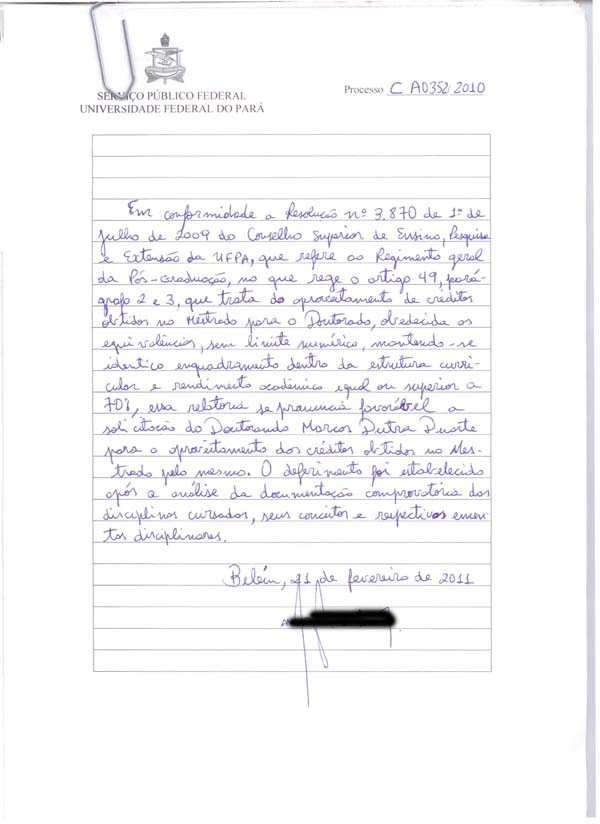 SERVIÇO PÚBLICO FEDERAL
UNIVERSIDADE FEDERAL DO PARÁ
Processo C A0352/2010
Em conformidade a Resolução nº 3.870 de 1º de
julho de 2009 do Conselho Superior de Ensino, Pesquisa
e Extensão da UFPA, que refere ao Regimento geral
da Pós-Graduação, no que rege o artigo 49, pará-
grafo 2 e 3, que trata do aproveitamento de créditos
obtidos no Mestrado para o Doutorado, obedecida as
equivalências, sem limite numérico, mantendo-se
identico enquadramento dentro da estrutura curri-
cular e rendimento acadêmico igual ou superior a
70%, essa relatoria se pronuncia favorável a
solicitação do Doutorando Marcos Dutra Duarte
para o aproveitamento dos créditos obtidos no Mes-
trado pelo mesmo. O deferimento foi estabelecido
após a análise da documentação comprovatória das
disciplinas cursadas, seus conceitos e respectivas emen-
tas disciplinares.
Belém, 21 de fevereiro de 2011